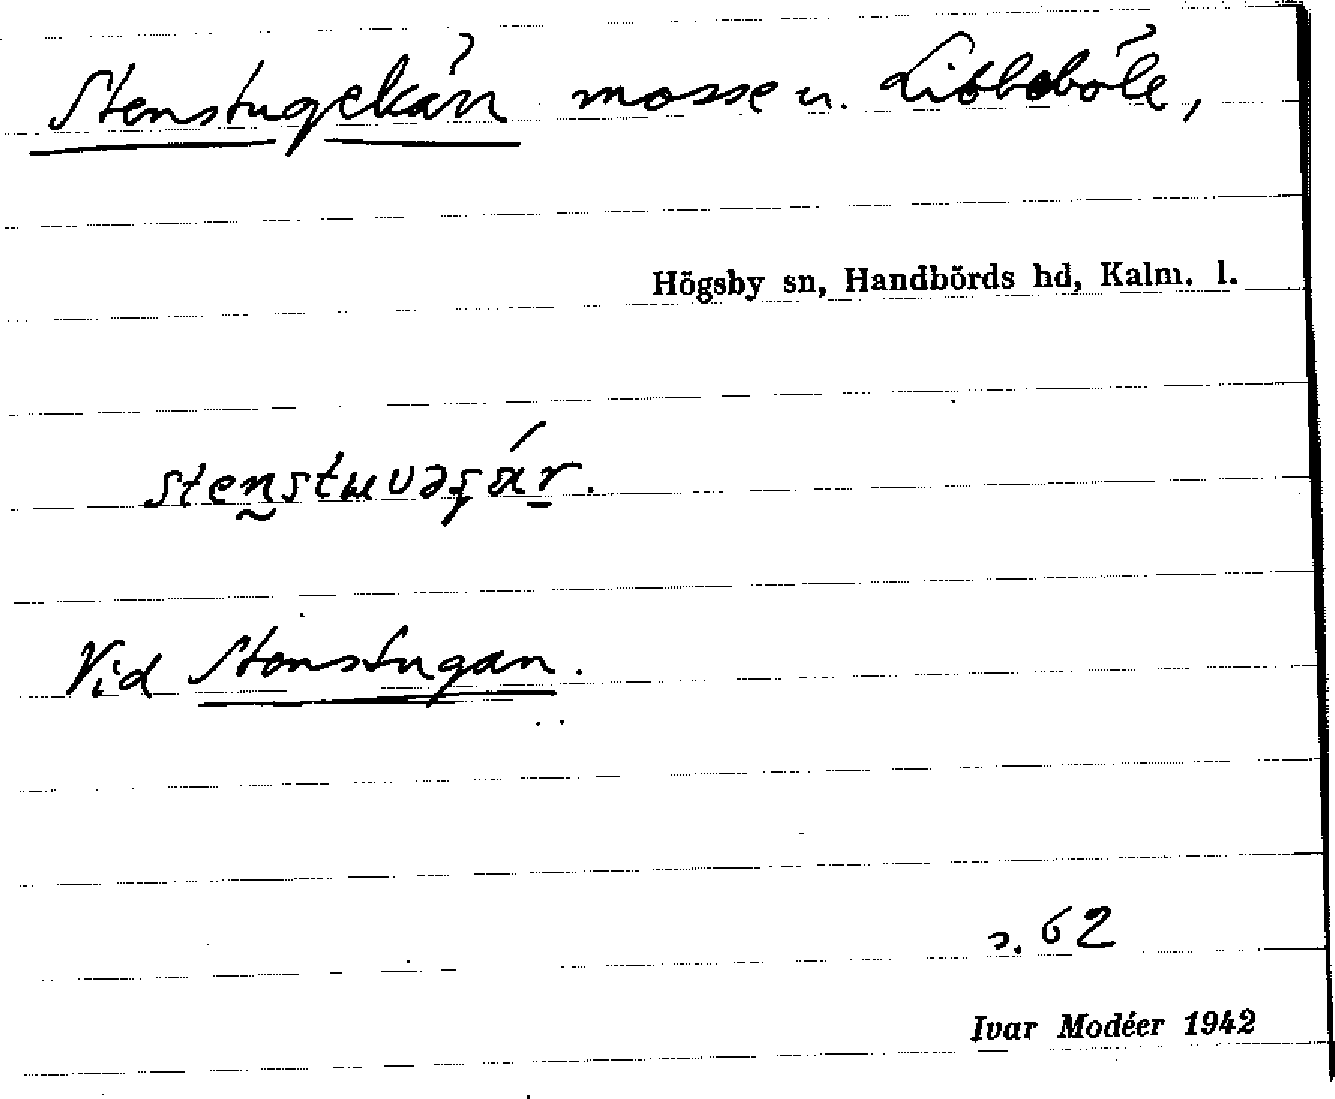 Stenstugekärr mosse u. Libbeböle,
Högsby sn, Handbörds hd, Kalm. l.
Vid Stenstugan.
s. 62
Ivar Modéer 1942